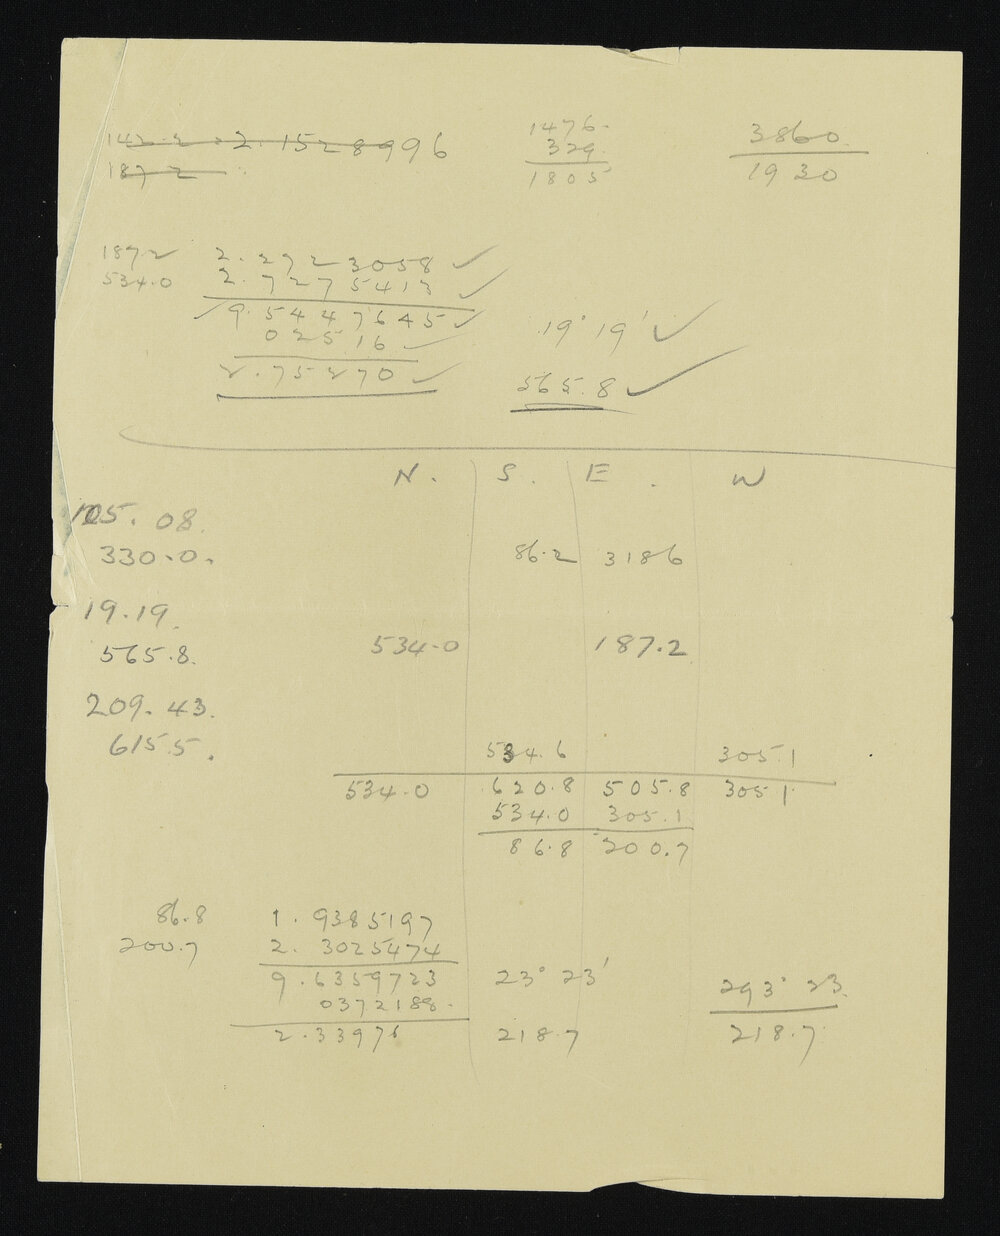 142.2 2.1528996
187.2
1476.
329.
1805
3860
1930
187.2 2.2723058
534.0 2.7275413
9.5447645
02516
2.75270
19° 19'
565.8
N. S. E. W
105.08.
330.0. 86.2 318.6
19.19.
565.8. 534.0 187.2
209.43.
615.5. 534.6 305.1
534.0 620.8 505.8 305.1
534.0 305.1
86.8 200.7
86.8 1.9385197
200.7 2.3025474
9.6359723 23° 23' 293° 23.
0372188.
2.33976 218.7 218.7